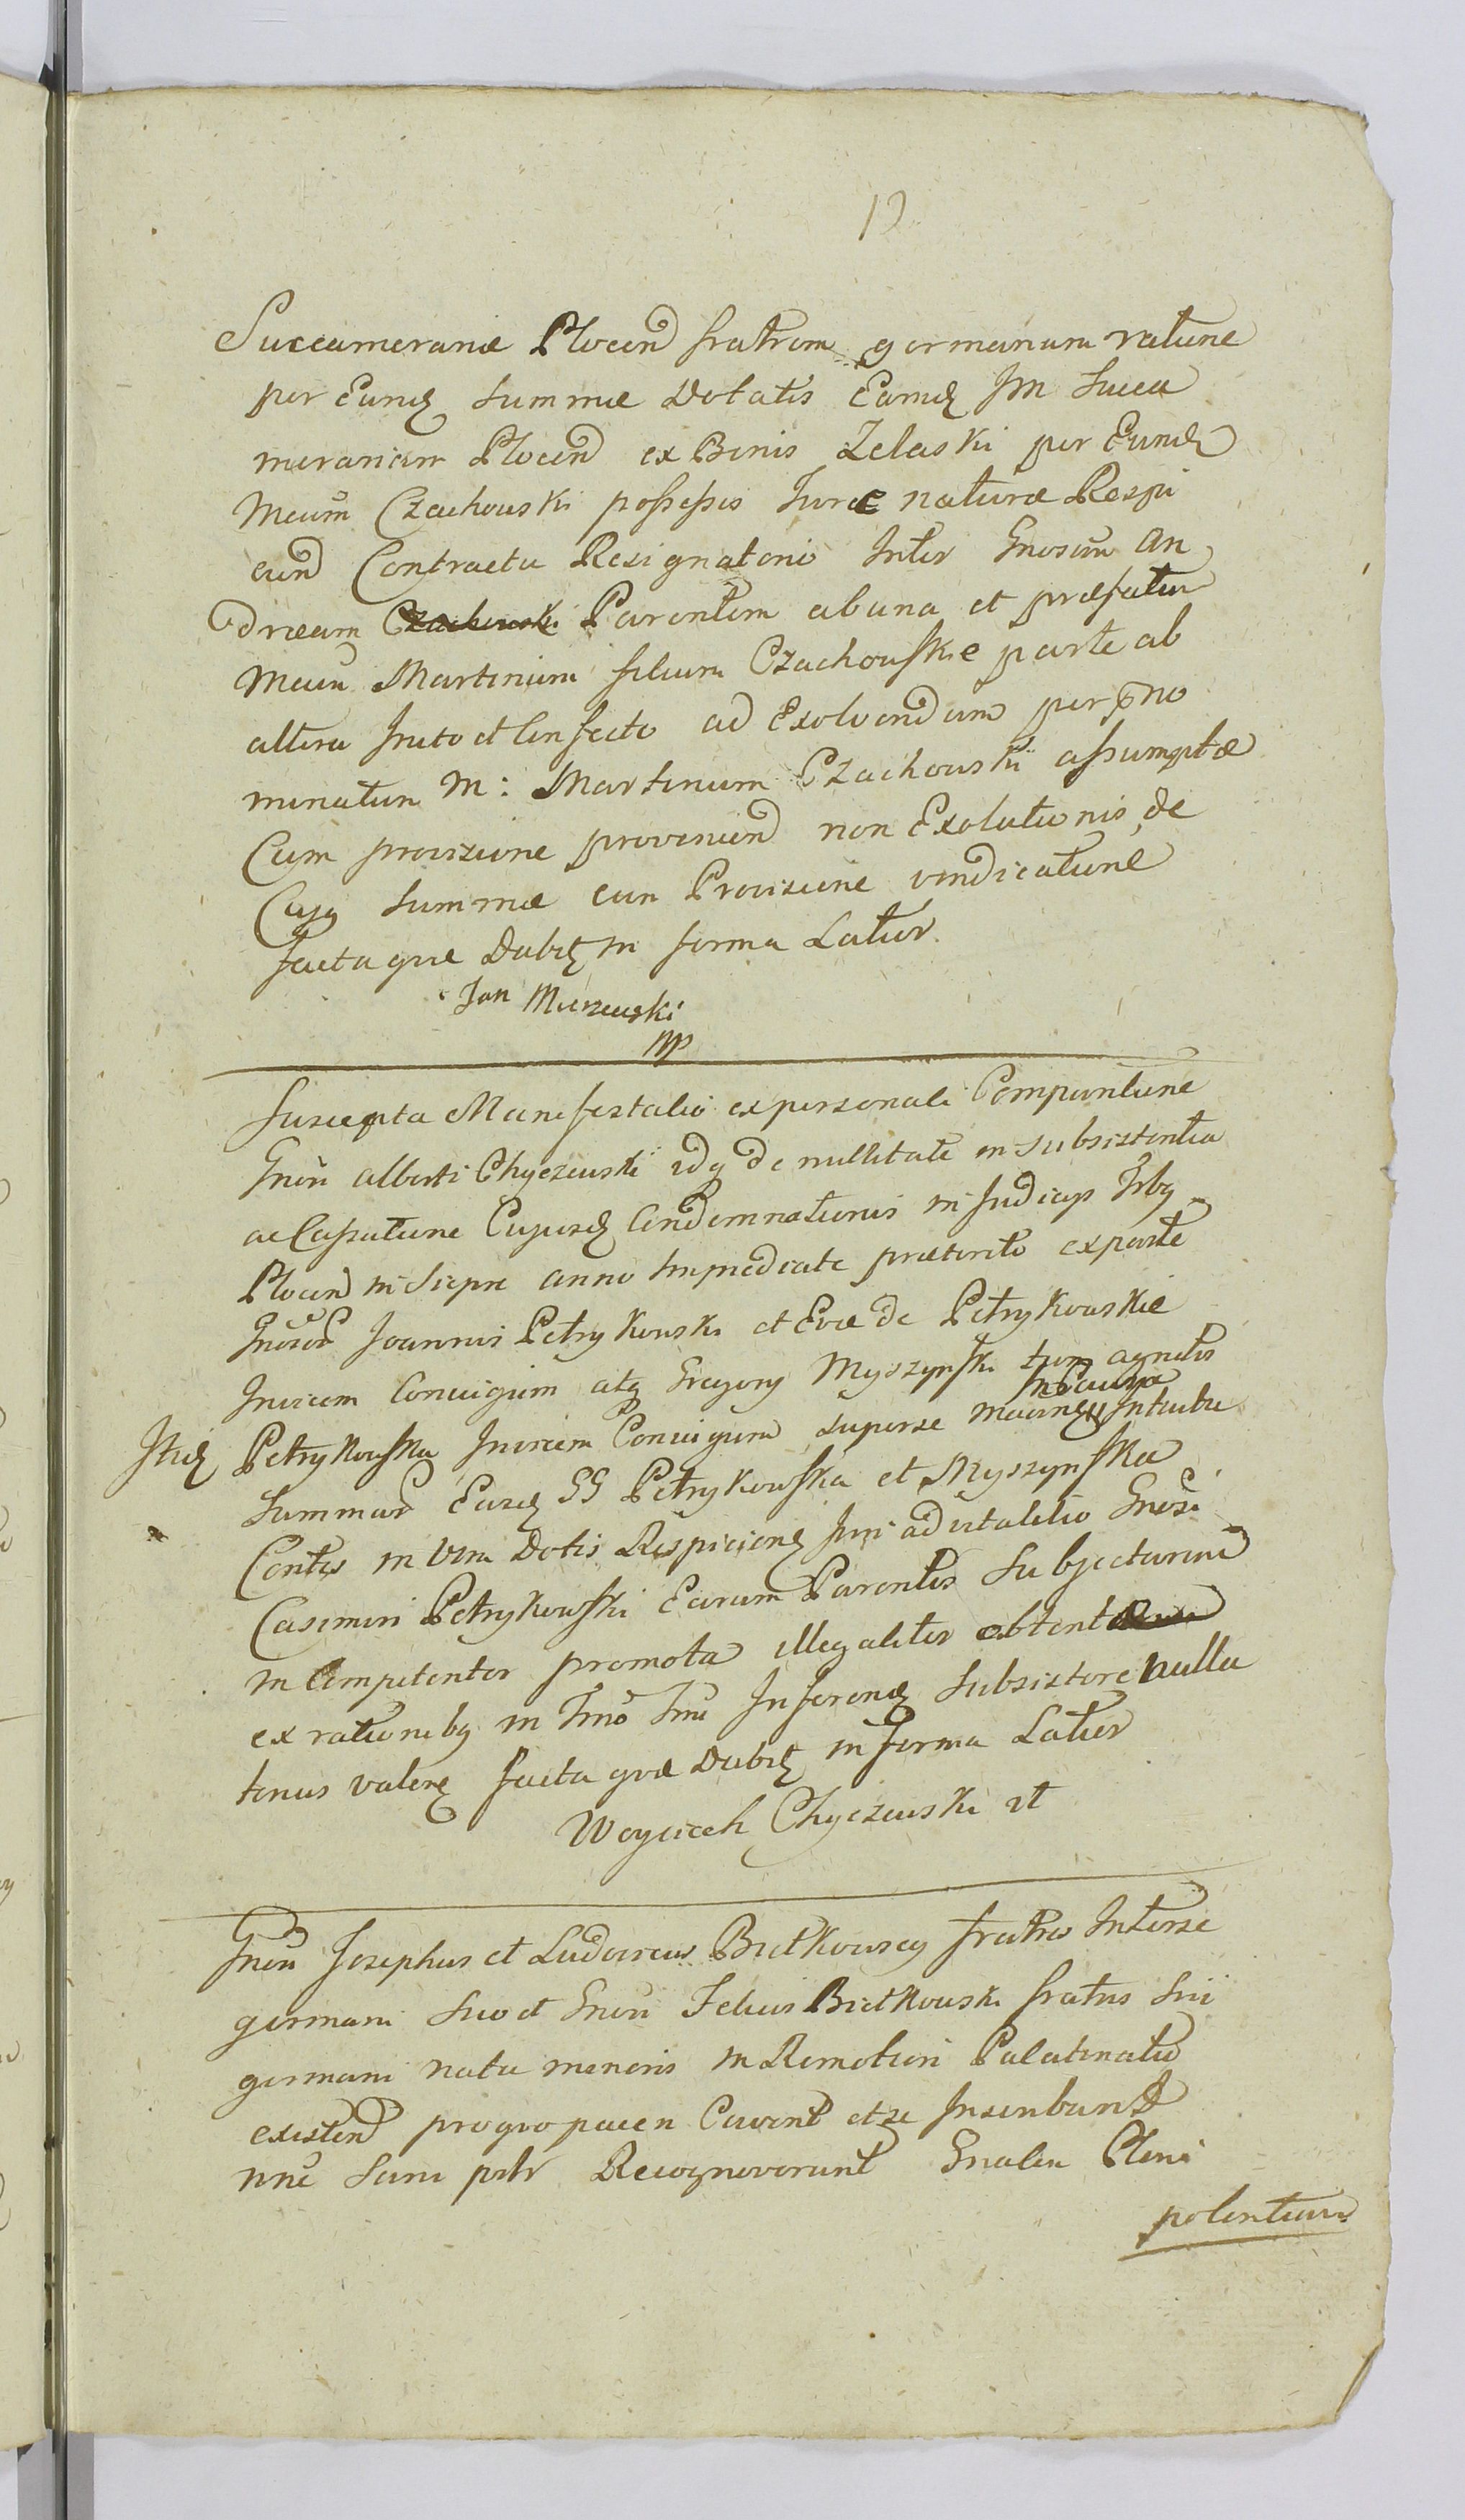 12
Succamerariæ Plocen fratrem germanum ratione
per Eund Summæ Dotalis Eamd Jm Succa
merariam Plocen ex Bonis Zelaski per Eund
Mcum Czachowski possessis Jure naturæ Respi
cien Contractu Resignatorio Inter Gnosum An
dream Czachowski Parentem ab una et præfatum
Mcum Martinum filium Czachowskie parte ab
altera Inito et Confecto ad Exolvendum per no
minatum M: Martinum Czachowski assumptæ
Cum provisione provenien non Exolutionis, de
Cujus Summæ cum Provisione vindicatione
facta quæ Dabit in forma Latior
Jan Mierzewski
mp
Suscepta Manifestatio ex personali Comparitione
Gnosi Alberti Chyczewski idq de nullitate in subsistentia
ac Cassatione Cujusd Condemnationis in Judicijs Trbus
Plocen in Sierpc anno Immediate præterito ex parte
Gnosor Joannis Petrykowski et Evæ de Petrykowskie
Invicem Conjugum atq Gregory Myszynski tum agnetis
In Causa
Itid Petrykowska Invicem Conjugum Superse Intuitu
Summar Earud GG Petrykowska et Myszynska
Contgs in Vim Dotis Respicien Juri advitalitio Gnosi
Casimiri Petrykowski Earum Parentis Subjectarum
in Competenter promota illegaliter obtentæ
ex rationibus in Tmo Tmi Inferend Subsistere nulla
tenus valend facta quæ Dabit in forma Latior
Woyciech Chyczewski
Gnosi Josephus et Ludovicus Bietkowscy fratres Interse
germani Suo et Gnosi Felicis Bietkowski fratris Sui
germani natu minoris in Remotiori Palatinatu
existen pro quo pacem Cavent et se Inscribunt
nne Sani pstr Recognoverunt Gnalem Pleni
potentiam